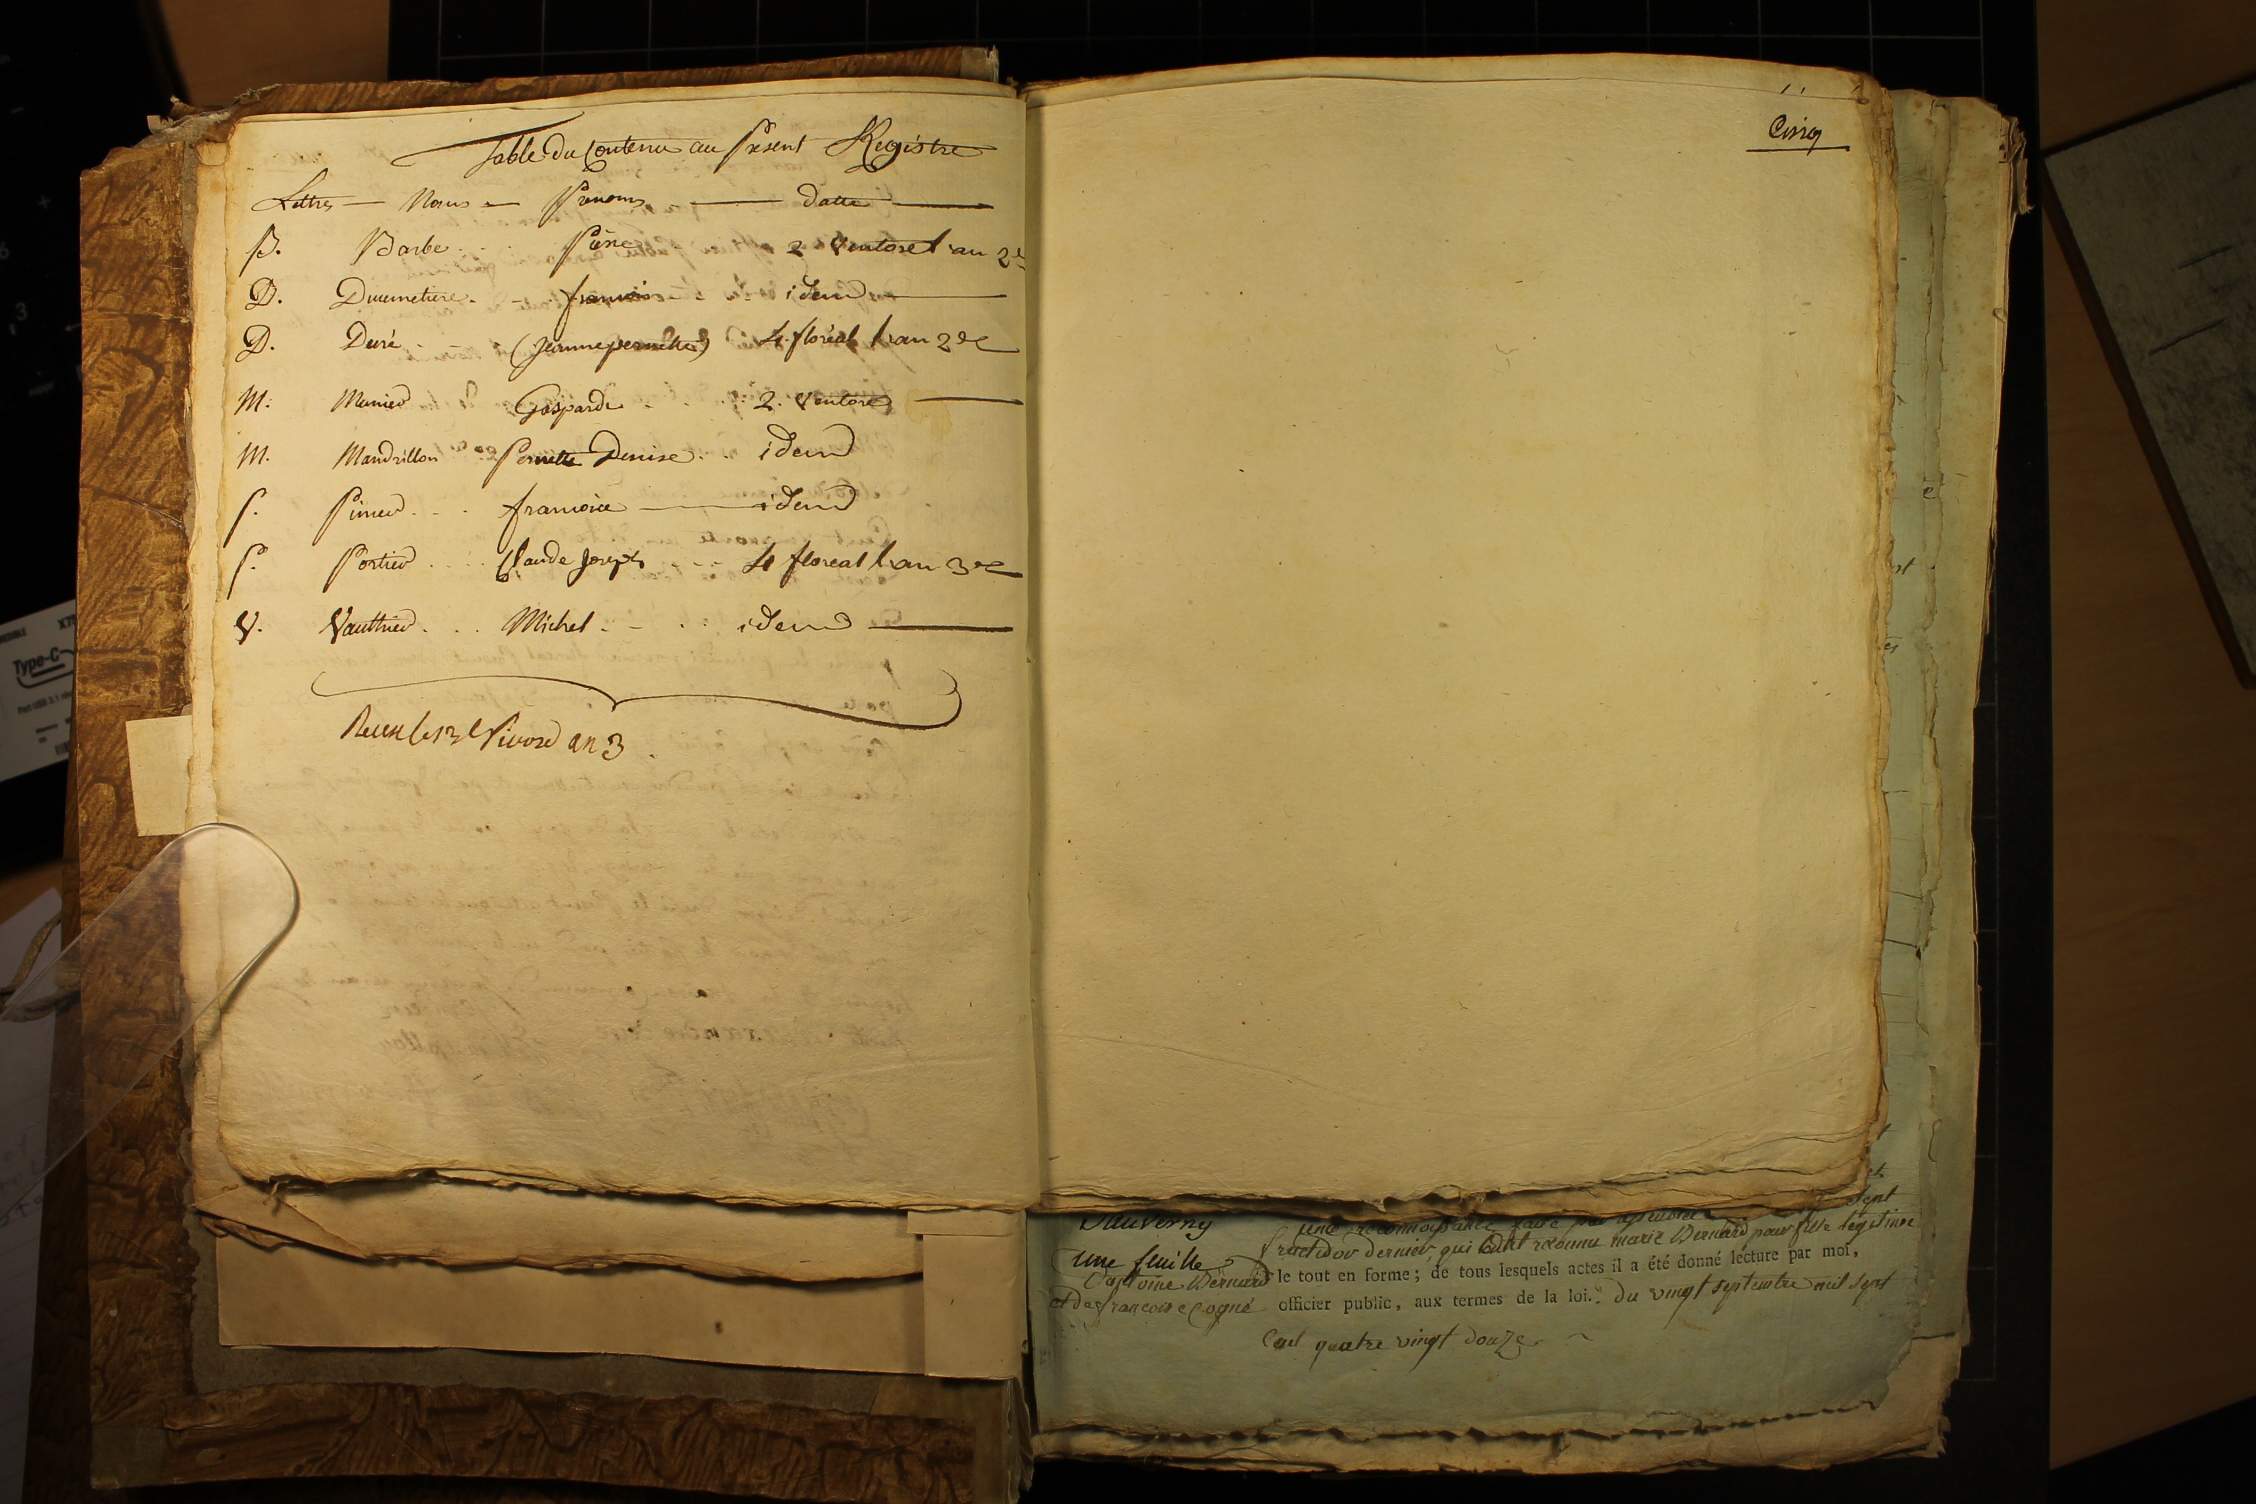 Table Du Contenu au Présent Registre
Lettres — Noms — Prénoms — Datte —
B. Barbe . . . Piere 2 Ventose l'an 2e
D. Dumetiere . - francois . . idem —
D. Duré . (Jeanne pernette) 4 floréal l'an 2de
M. Monier Gasparde . . . 2. Ventose —
M. Mandrillon Pernette Denise . . idem
P. Piner . - . francoise — idem
P. Portier . . . . Claude Joseph . - - 4 floréal l'an 3e
V. Vauthier . . . Michel . - . : idem —
le 13 Nivose an 3
Cinq
Sauverny
une feuille
D'antoine Bernard
et de francoise Cogné
une reconnoissance faite
fructidor dernier, qui ont reconnu marie Bernard pour fille légitime
le tout en forme; de tous lesquels actes il a été donné lecture par moi,
officier public, aux termes de la loi. Du vingt septembre mil sept
Cent quatre vingt douze
Type-C